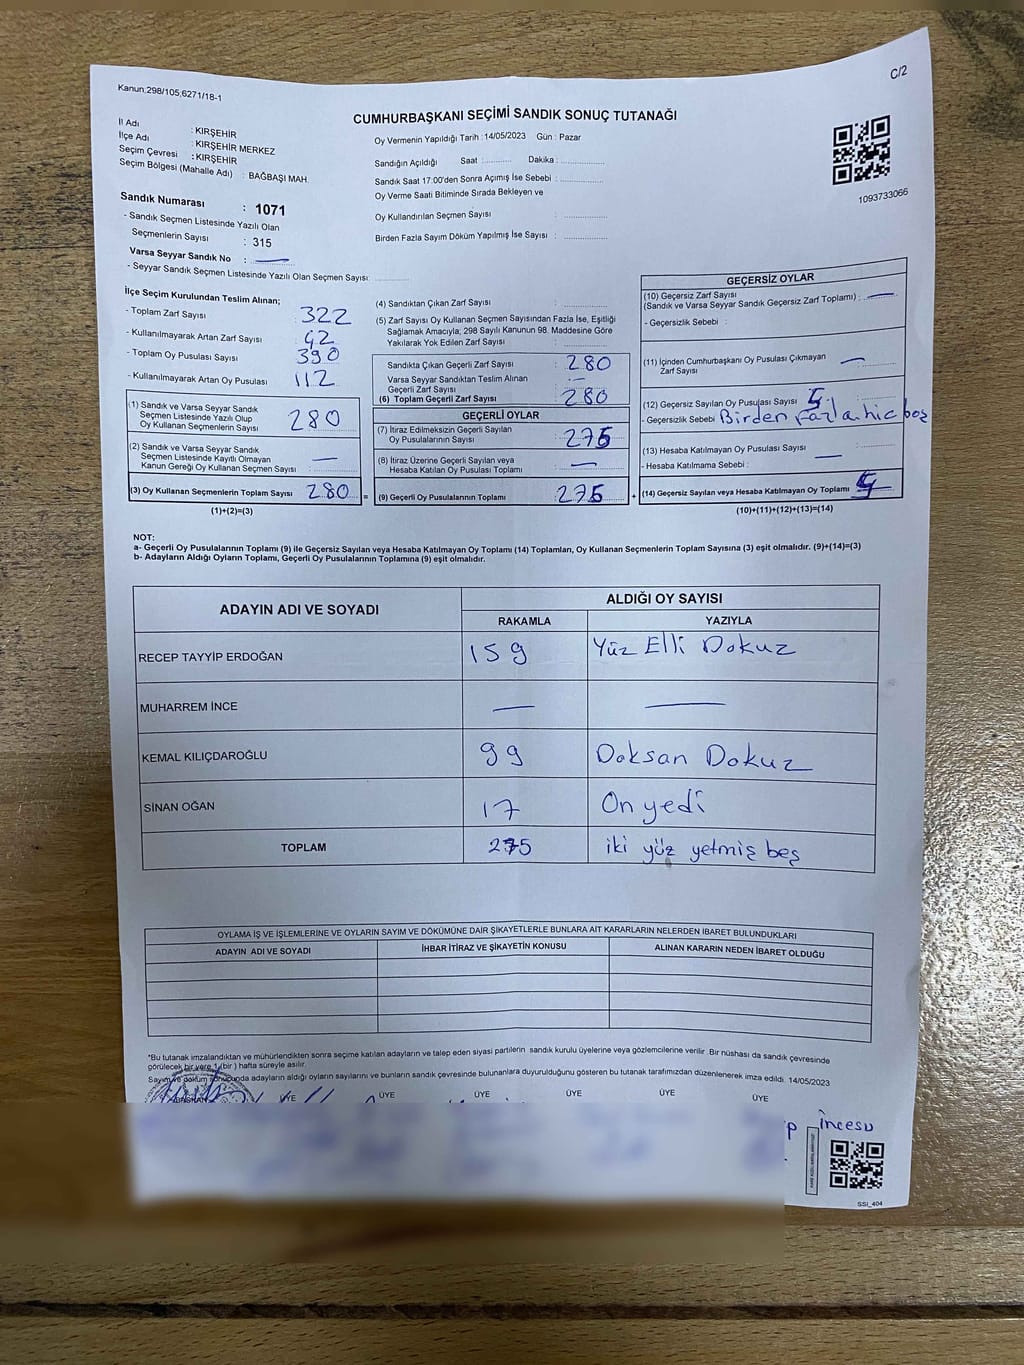 Kanun,298/105,6271/18-1
C/2
CUMHURBAŞKANI SEÇİMİ SANDIK SONUÇ TUTANAĞI
İl Adı : KIRŞEHİR
İlçe Adı : KIRŞEHİR MERKEZ
Seçim Çevresi : KIRŞEHİR
Seçim Bölgesi (Mahalle Adı) : BAĞBAŞI MAH.
Oy Vermenin Yapıldığı Tarih : 14/05/2023 Gün : Pazar
Sandığın Açıldığı Saat : Dakika :
Sandık Saat 17:00'den Sonra Açımış İse Sebebi :
Oy Verme Saati Bitiminde Sırada Bekleyen ve
Oy Kullandırılan Seçmen Sayısı :
Birden Fazla Sayım Döküm Yapılmış İse Sayısı :
1093733066
Sandık Numarası : 1071
- Sandık Seçmen Listesinde Yazılı Olan
Seçmenlerin Sayısı : 315
Varsa Seyyar Sandık No : —
- Seyyar Sandık Seçmen Listesinde Yazılı Olan Seçmen Sayısı:
İlçe Seçim Kurulundan Teslim Alınan;
- Toplam Zarf Sayısı : 322
- Kullanılmayarak Artan Zarf Sayısı : 42
- Toplam Oy Pusulası Sayısı : 390
- Kullanılmayarak Artan Oy Pusulası : 112
(1) Sandık ve Varsa Seyyar Sandık
Seçmen Listesinde Yazılı Olup
Oy Kullanan Seçmenlerin Sayısı : 280
(2) Sandık ve Varsa Seyyar Sandık
Seçmen Listesinde Kayıtlı Olmayan
Kanun Gereği Oy Kullanan Seçmen Sayısı : —
(3) Oy Kullanan Seçmenlerin Toplam Sayısı : 280 =
(1)+(2)=(3)
(4) Sandıktan Çıkan Zarf Sayısı :
(5) Zarf Sayısı Oy Kullanan Seçmen Sayısından Fazla İse, Eşitliği
Sağlamak Amacıyla; 298 Sayılı Kanunun 98. Maddesine Göre
Yakılarak Yok Edilen Zarf Sayısı :
Sandıkta Çıkan Geçerli Zarf Sayısı : 280
Varsa Seyyar Sandıktan Teslim Alınan
Geçerli Zarf Sayısı : —
(6) Toplam Geçerli Zarf Sayısı : 280
GEÇERLİ OYLAR
(7) İtiraz Edilmeksizin Geçerli Sayılan
Oy Pusulalarının Sayısı : 275
(8) İtiraz Üzerine Geçerli Sayılan veya
Hesaba Katılan Oy Pusulası Toplamı : —
(9) Geçerli Oy Pusulalarının Toplamı : 275 +
GEÇERSİZ OYLAR
(10) Geçersiz Zarf Sayısı
(Sandık ve Varsa Seyyar Sandık Geçersiz Zarf Toplamı) : —
- Geçersizlik Sebebi :
(11) İçinden Cumhurbaşkanı Oy Pusulası Çıkmayan
Zarf Sayısı : —
(12) Geçersiz Sayılan Oy Pusulası Sayısı :
- Geçersizlik Sebebi : Birden fazla hic boş
(13) Hesaba Katılmayan Oy Pusulası Sayısı : —
- Hesaba Katılmama Sebebi :
(14) Geçersiz Sayılan veya Hesaba Katılmayan Oy Toplamı :
(10)+(11)+(12)+(13)=(14)
NOT:
a- Geçerli Oy Pusulalarının Toplamı (9) ile Geçersiz Sayılan veya Hesaba Katılmayan Oy Toplamı (14) Toplamları, Oy Kullanan Seçmenlerin Toplam Sayısına (3) eşit olmalıdır. (9)+(14)=(3)
b- Adayların Aldığı Oyların Toplamı, Geçerli Oy Pusulalarının Toplamına (9) eşit olmalıdır.
ADAYIN ADI VE SOYADI
ALDIĞI OY SAYISI
RAKAMLA YAZIYLA
RECEP TAYYİP ERDOĞAN 159 Yüz Elli Dokuz
MUHARREM İNCE — —
KEMAL KILIÇDAROĞLU 99 Doksan Dokuz
SİNAN OĞAN 17 On yedi
TOPLAM 275 iki yüz yetmiş beş
OYLAMA İŞ VE İŞLEMLERİNE VE OYLARIN SAYIM VE DÖKÜMÜNE DAİR ŞİKAYETLERLE BUNLARA AİT KARARLARIN NELERDEN İBARET BULUNDUKLARI
ADAYIN ADI VE SOYADI İHBAR İTİRAZ VE ŞİKAYETİN KONUSU ALINAN KARARIN NEDEN İBARET OLDUĞU
*Bu tutanak imzalandıktan ve mühürlendikten sonra seçime katılan adayların ve talep eden siyasi partilerin sandık kurulu üyelerine veya gözlemcilerine verilir. Bir nüshası da sandık çevresinde
görülecek bir yere 1 (bir ) hafta süreyle asılır.
Sayım ve döküm sonucunda adayların aldığı oyların sayılarını ve bunların sandık çevresinde bulunanlara duyurulduğunu gösteren bu tutanak tarafımızdan düzenlenerek imza edildi. 14/05/2023
BAŞKAN ÜYE ÜYE ÜYE ÜYE ÜYE ÜYE
İncesu
SSI_404